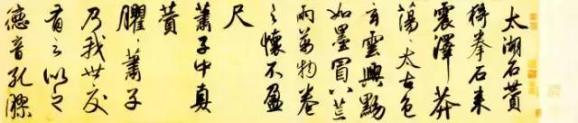 太湖石贊
猗拳石来
震澤莽
蕩太古色
玄雲興黝
如墨冒八荒
雨萬物卷
之懷不盈
尺
蕭子中真
贊
臞〻蕭子
乃我世交
有之似之
德音孔膠